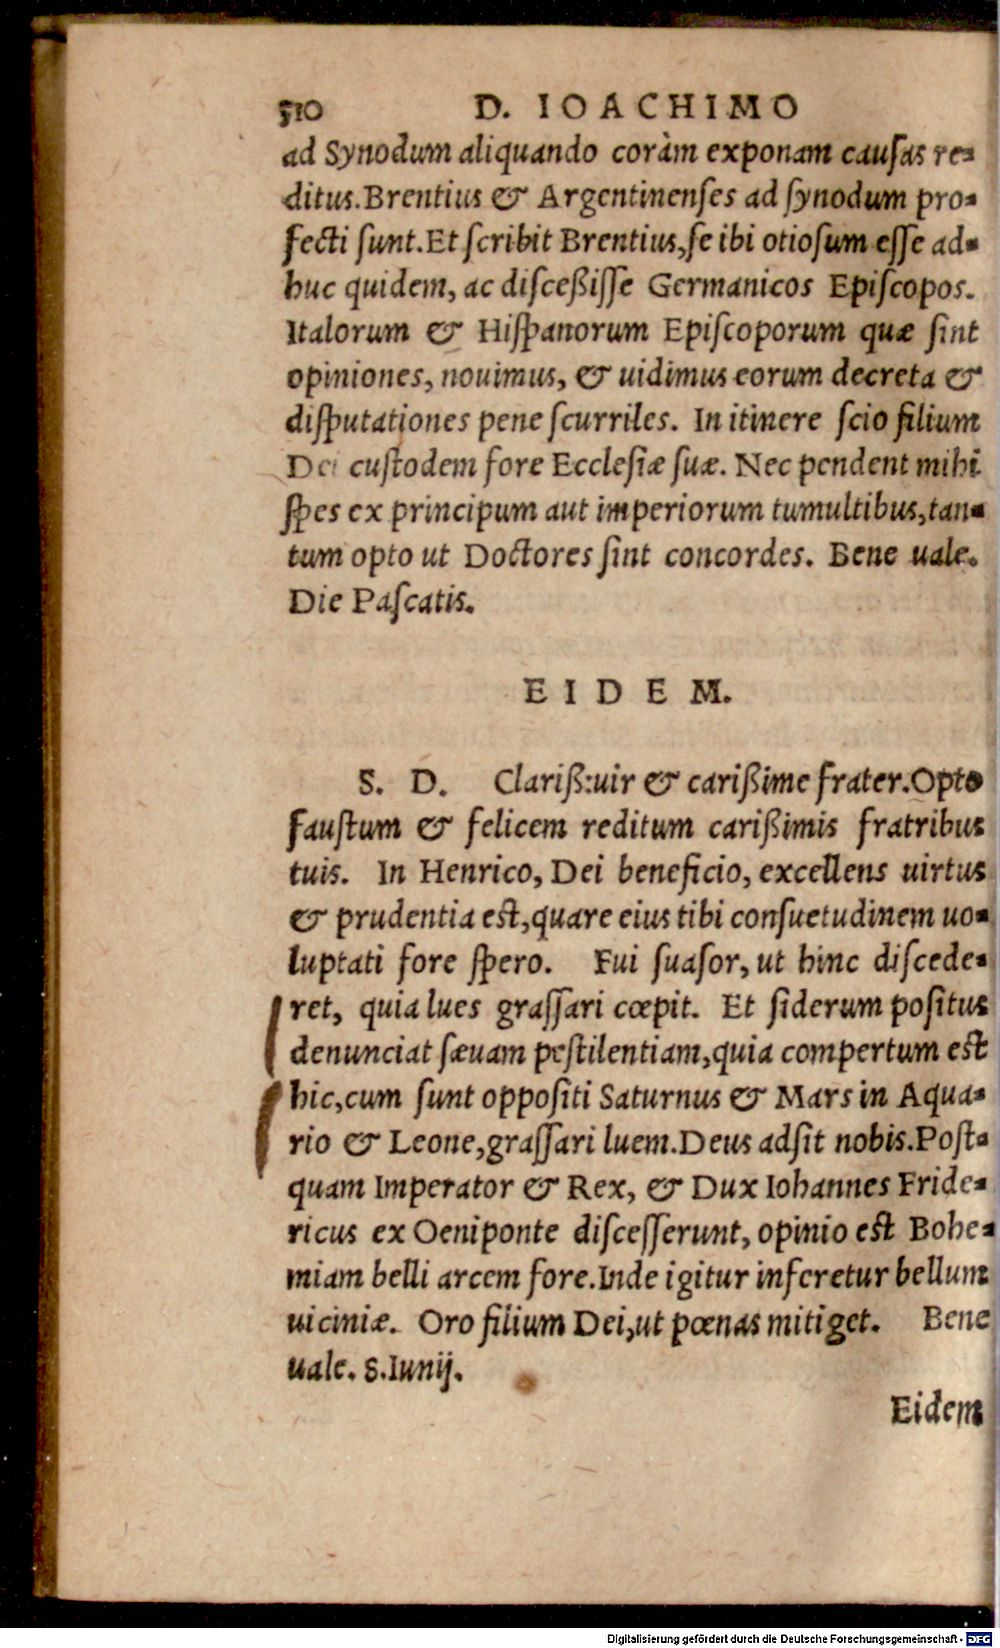 510 D. IOACHIMO
ad Synodum aliquando coràm exponam causas re-
ditus. Brentius & Argentinenses ad synodum pro-
fecti sunt. Et scribit Brentius, se ibi otiosum esse ad-
huc quidem, ac disceßisse Germanicos Episcopos.
Italorum & Hispanorum Episcoporum quæ sint
opiniones, nouimus, & uidimus eorum decreta &
disputationes pene scurriles. In itinere scio filium
Dei custodem fore Ecclesiæ suæ. Nec pendent mihi
spes ex principum aut imperiorum tumultibus, tan-
tum opto ut Doctores sint concordes. Bene uale.
Die Pascatis.
EIDEM.
S. D. Clariß: uir & carißime frater. Opto
faustum & felicem reditum carißimis fratribus
tuis. In Henrico, Dei beneficio, excellens uirtus
& prudentia est, quare eius tibi consuetudinem uo-
luptati fore spero. Fui suasor, ut hinc discede-
ret, quia lues grassari cœpit. Et siderum positus
denunciat sæuam pestilentiam, quia compertum est
hic, cum sunt oppositi Saturnus & Mars in Aqua-
rio & Leone, grassari luem. Deus adsit nobis. Post-
quam Imperator & Rex, & Dux Iohannes Fride-
ricus ex Oeniponte discesserunt, opinio est Bohe-
miam belli arcem fore. Inde igitur inferetur bellum
uiciniæ. Oro filium Dei, ut pœnas mitiget. Bene
uale. 8. Iunij.
Eidem
Digitalisierung gefördert durch die Deutsche Forschungsgemeinschaft - DFG